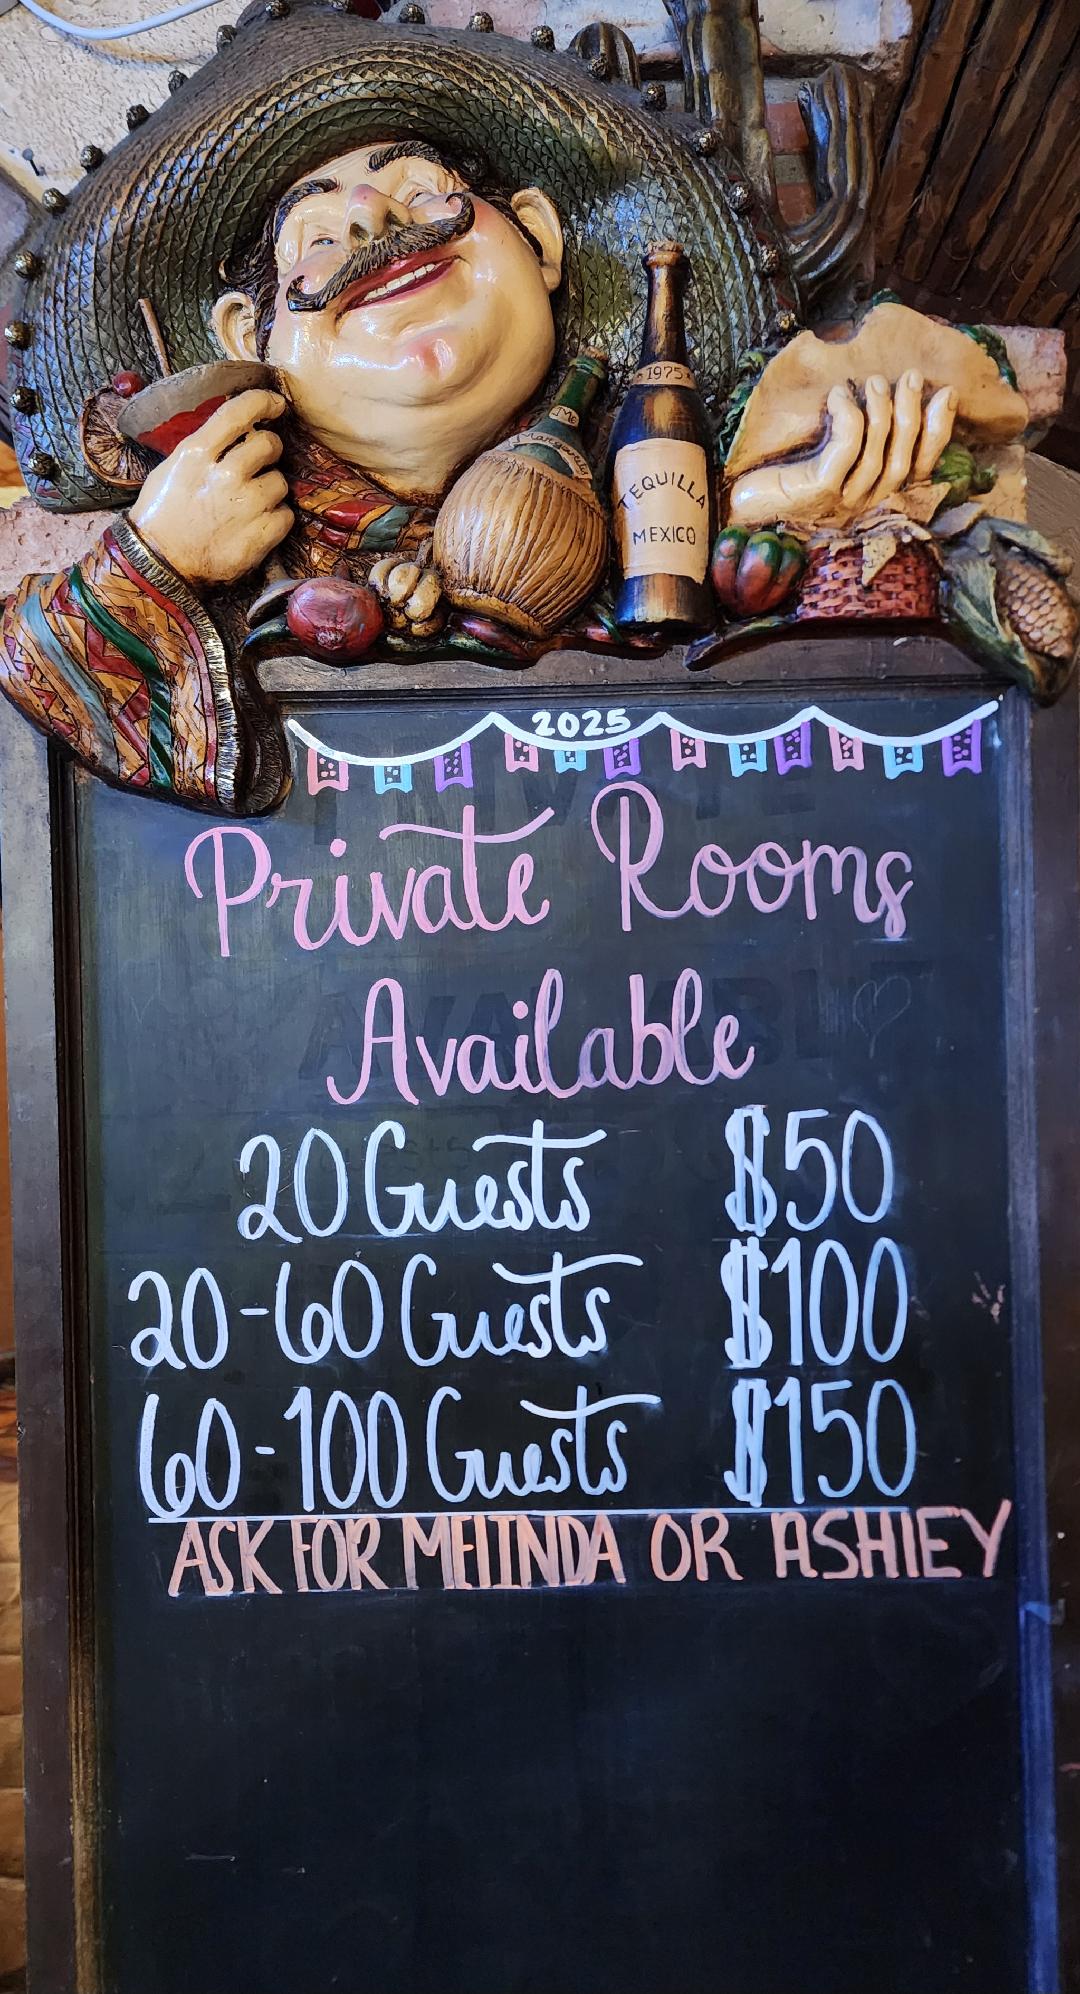 1975
Me
Margarita
TEQUILLA
MEXICO
2025
Private Rooms
Available
20 Guests $50
20-60 Guests $100
60-100 Guests $150
ASK FOR MELINDA OR ASHLEY